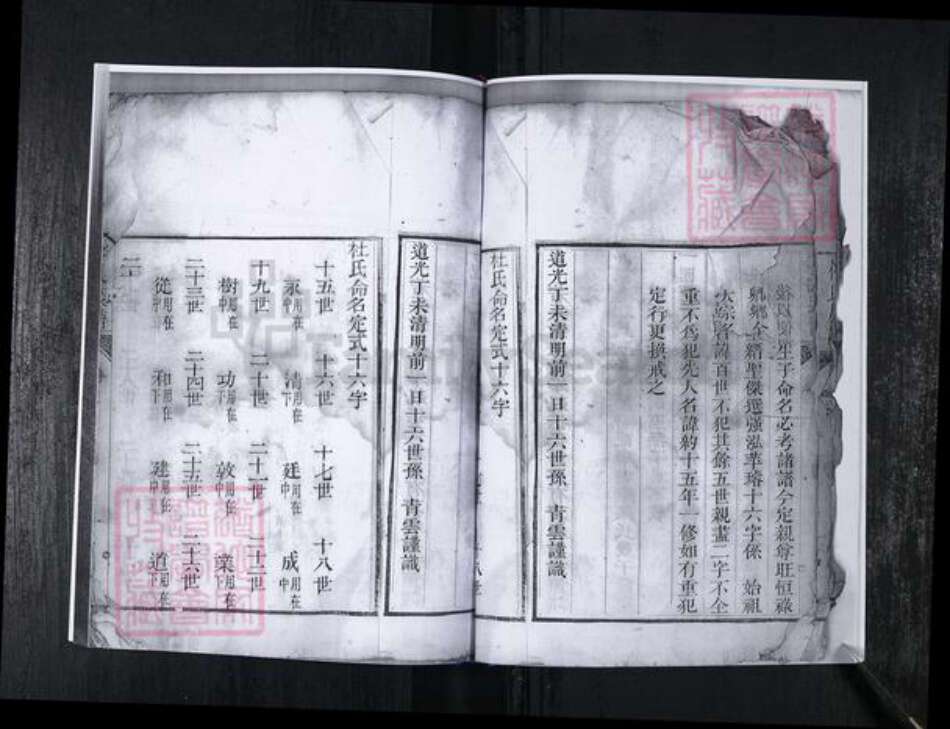 嗣以後生子命名必考諸譜今定親尊旺恒祿
兆鄉今籍聖傑選強泓苹璿十六字係 始祖
諱百世不犯其餘五世親盡二字不全
重不爲犯先人名諱約十五年一修如有重犯
定行更換戒之
道光丁未清明前一日十六世孫 青雲謹識
杜氏命名定式十六字
道光丁未清明前一日十六世孫 青雲謹識
杜氏命名定式十六字
十五世 十六世 十七世 十八世
永用在中 清用在下 廷用在中 成用在中
十九世 二十世 二十一世 二十二世
樹用在中 功用在下 敦用在中 業用在下
二十三世 二十四世 二十五世 二十六世
從用在中 和用在下 建用在中 道用在下